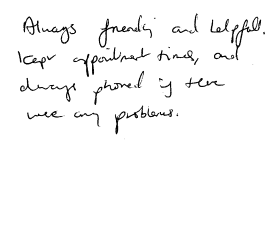 Always friendly and helpful.
Kept appointment times, and
always phoned if there
were any problems.